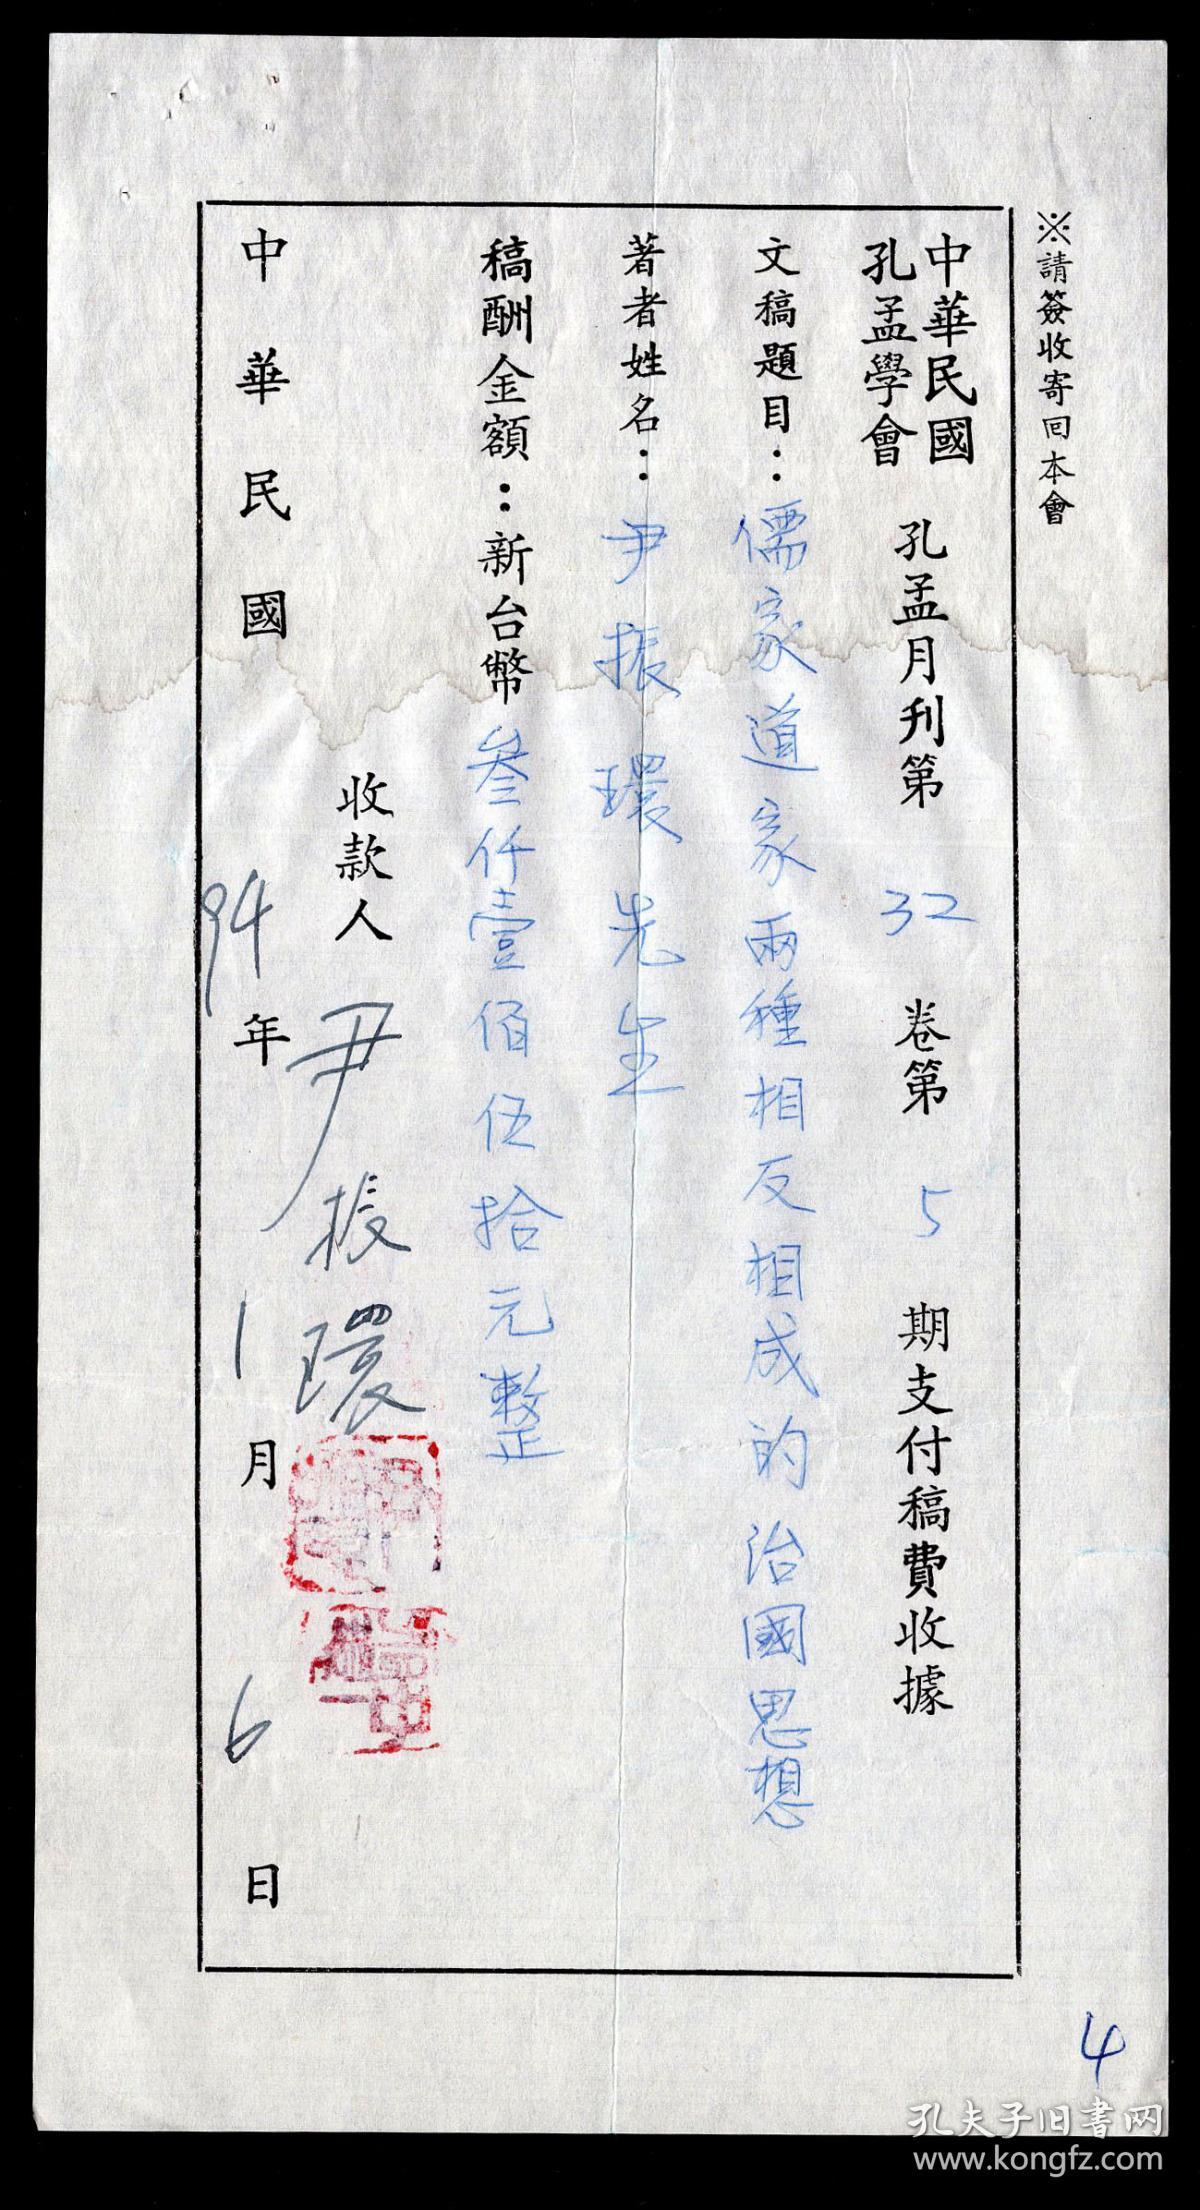 ※請簽收寄回本會
中華民國
孔孟學會
孔孟月刊第 32 卷第 5 期支付稿費收據
文稿題目：儒家道家兩種相反相成的治國思想
著者姓名：尹振環先生
稿酬金額：新台幣叁仟壹佰伍拾元整
收款人 尹振環
中華民國 94 年 1 月 6 日
4
孔夫子旧书网
www.kongfz.com